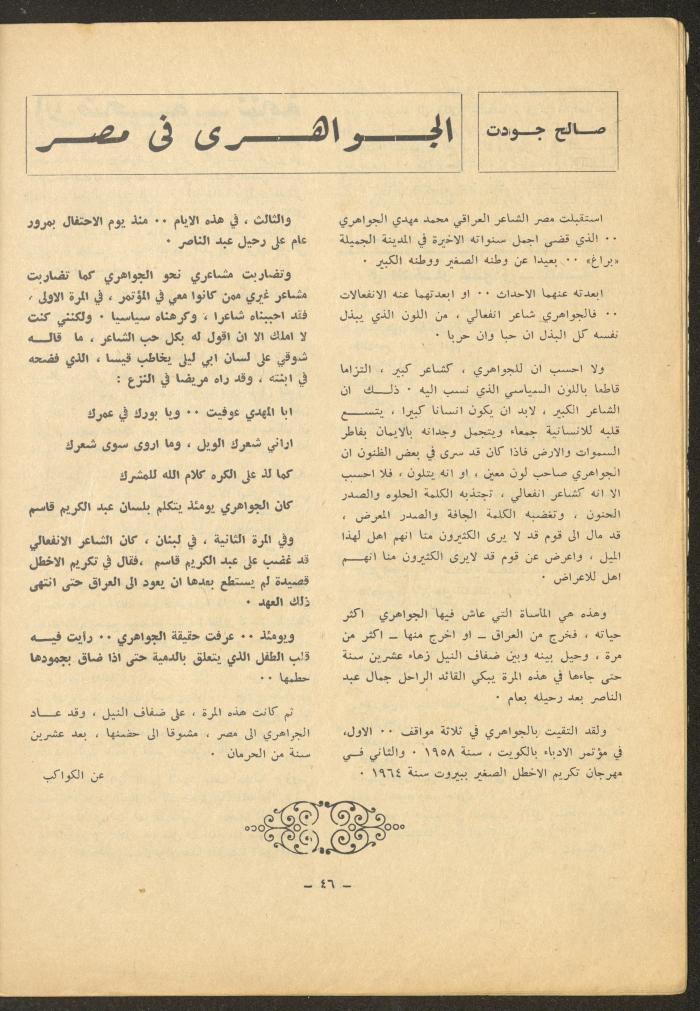 صالح جودت
الجواهرى فى مصر
استقبلت مصر الشاعر العراقي محمد مهدي الجواهري
٠٠ الذي قضى اجمل سنواته الاخيرة في المدينة الجميلة
«براغ» ٠٠ بعيدا عن وطنه الصغير ووطنه الكبير ٠
ابعدته عنهما الاحداث ٠٠ او ابعدتهما عنه الانفعالات
٠٠ فالجواهري شاعر انفعالي ، من اللون الذي يبذل
نفسه كل البذل ان حبا وان حربا ٠
ولا احسب ان للجواهري ، كشاعر كبير ، التزاما
قاطعا باللون السياسي الذي نسب اليه ٠ ذلك ان
الشاعر الكبير ، لابد ان يكون انسانا كبيرا ، يتسع
قلبه للانسانية جمعاء ويتجمل وجدانه بالايمان بفاطر
السموات والارض فاذا كان قد سرى في بعض الظنون ان
الجواهري صاحب لون معين ، او انه يتلون ، فلا احسب
الا انه كشاعر انفعالي ، تجتذبه الكلمة الحلوه والصدر
الحنون ، وتغضبه الكلمة الجافة والصدر المعرض ،
قد مال الى قوم قد لا يرى الكثيرون منا انهم اهل لهذا
الميل ، واعرض عن قوم قد لايرى الكثيرون منا انهم
اهل للاعراض ٠
وهذه هي المأساة التي عاش فيها الجواهري اكثر
حياته ، فخرج من العراق ـ او اخرج منها ـ اكثر من
مرة ، وحيل بينه وبين ضفاف النيل زهاء عشرين سنة
حتى جاءها في هذه المرة يبكي القائد الراحل جمال عبد
الناصر بعد رحيله بعام ٠
ولقد التقيت بالجواهري في ثلاثة مواقف ٠٠ الاول،
في مؤتمر الادباء بالكويت ، سنة ١٩٥٨ ٠ والثاني في
مهرجان تكريم الاخطل الصغير ببيروت سنة ١٩٦٤ ٠
والثالث ، في هذه الايام ٠٠ منذ يوم الاحتفال بمرور
عام على رحيل عبد الناصر ٠
وتضاربت مشاعري نحو الجواهري كما تضاربت
مشاعر غيري ممن كانوا معي في المؤتمر ، في المرة الاولى ،
فقد احببناه شاعرا ، وكرهناه سياسيا ٠ ولكنني كنت
لا املك الا ان اقول له بكل حب الشاعر ، ما قاله
شوقي على لسان ابي ليلى يخاطب قيسا ، الذي فضحه
في ابنته ، وقد راه مريضا في النزع :
ابا المهدي عوفيت ٠٠ ويا بورك في عمرك
اراني شعرك الويل ، وما اروى سوى شعرك
كما لذ على الكره كلام الله للمشرك
كان الجواهري يومئذ يتكلم بلسان عبد الكريم قاسم
وفي المرة الثانية ، في لبنان ، كان الشاعر الانفعالي
قد غضب على عبد الكريم قاسم ،فقال في تكريم الاخطل
قصيدة لم يستطع بعدها ان يعود الى العراق حتى انتهى
ذلك العهد ٠
ويومئذ ٠٠ عرفت حقيقة الجواهري ٠٠ رأيت فيه
قلب الطفل الذي يتعلق بالدمية حتى اذا ضاق بجمودها
حطمها ٠٠
ثم كانت هذه المرة ، على ضفاف النيل ، وقد عاد
الجواهري الى مصر ، مشوقا الى حضنها ، بعد عشرين
سنة من الحرمان ٠
عن الكواكب
ـ ٤٦ ـ